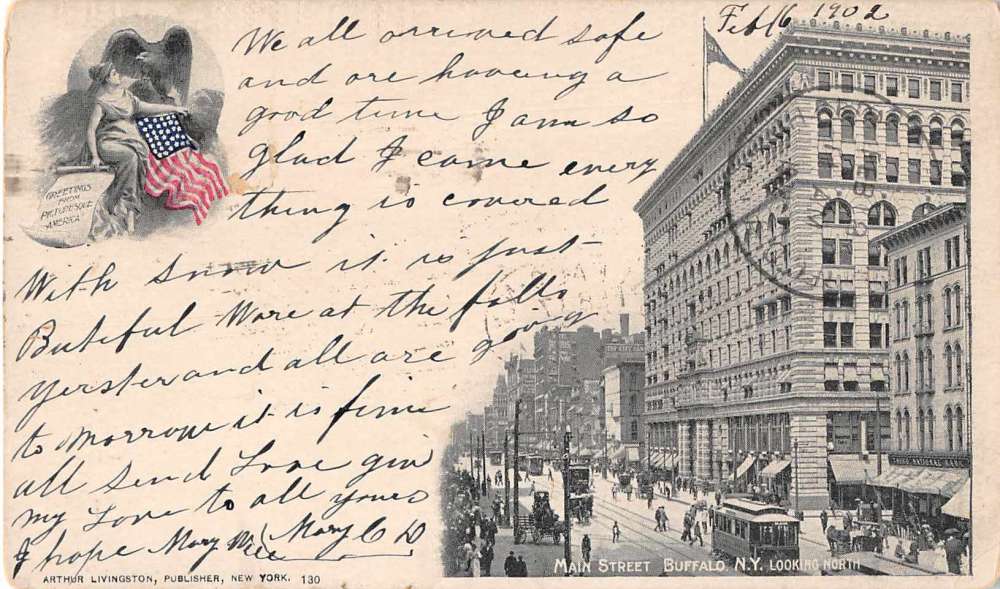 Feb 16 1902
We all arrived safe
and are haveing a
good time I am so
glad I came every
thing is covered
With snow it is just
Butiful Ware at the falls
Yerster and all are going
to morrow it is fine
all send Love give
my Love to all yours
I hope Mary Mary C D
GREETINGS
FROM
PICTURESQUE
AMERICA
NATIONAL BANK
MAIN STREET BUFFALO, N.Y. LOOKING NORTH
ARTHUR LIVINGSTON, PUBLISHER, NEW YORK. 130